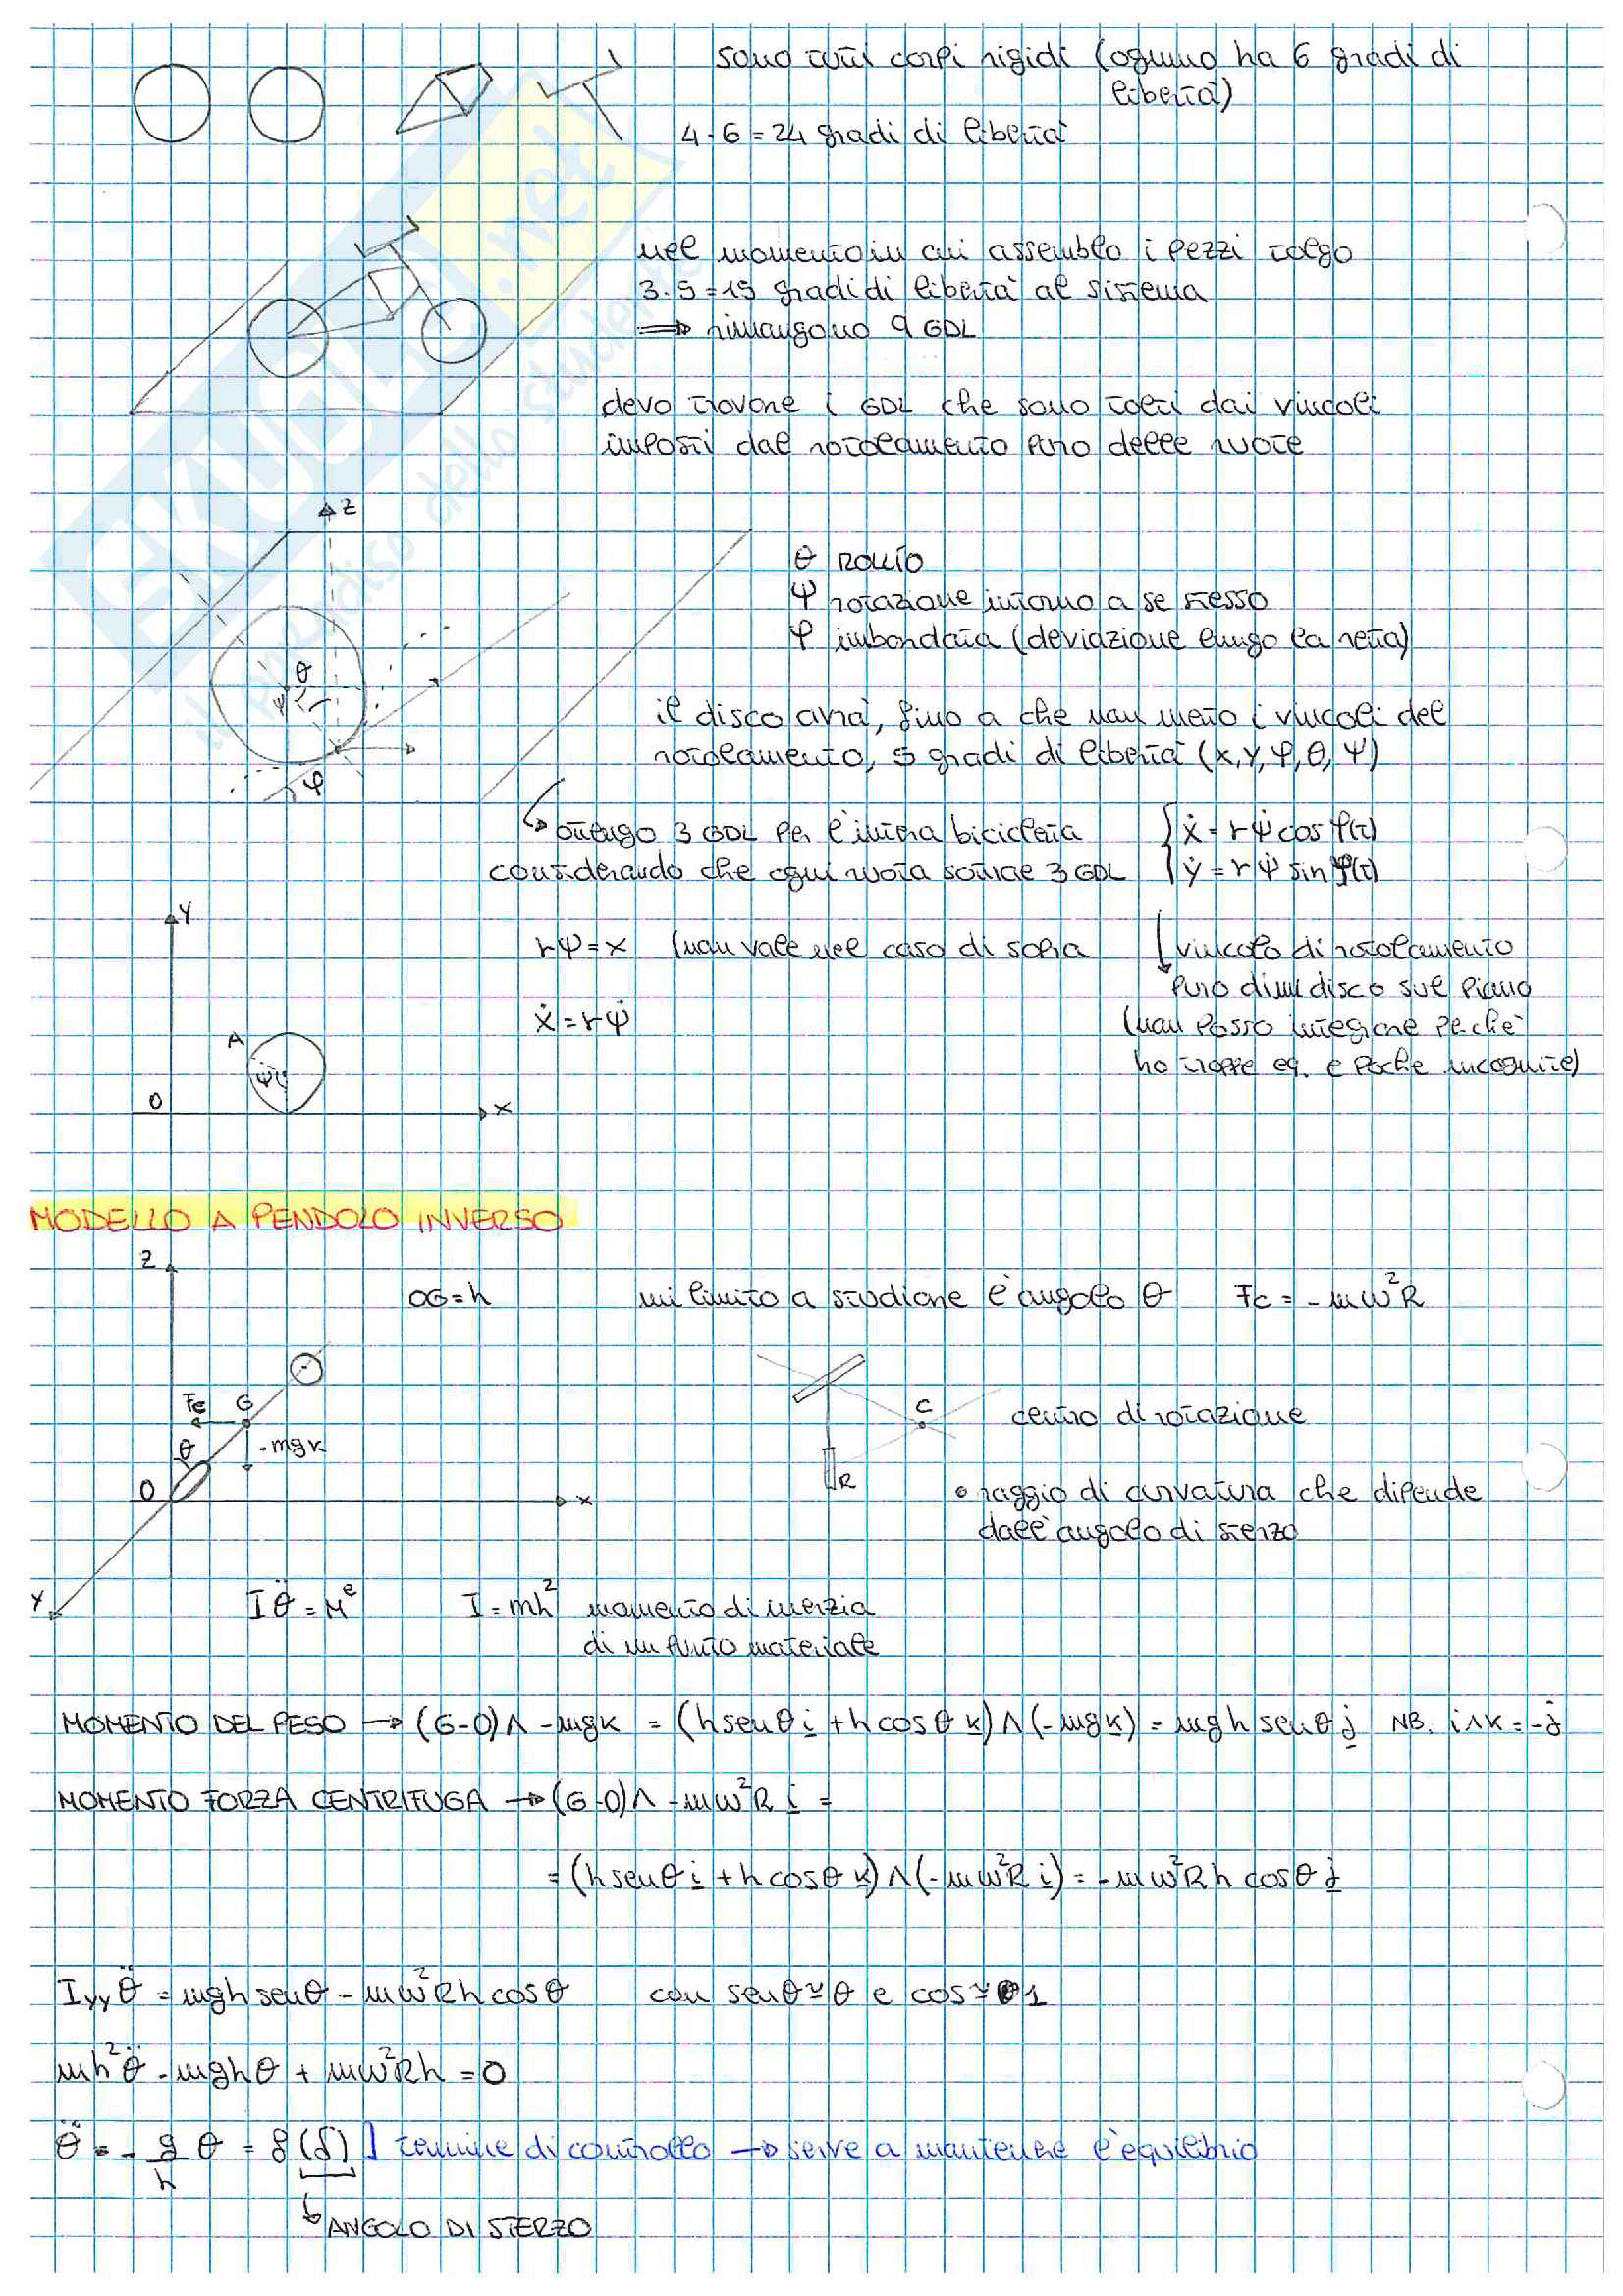 sono tutti corpi rigidi (ognuno ha 6 gradi di
libertà)
4·6=24 gradi di libertà
nel momento in cui assemblo i pezzi tolgo
3·5=15 gradi di libertà al sistema
⟹ rimangono 9 GDL
devo trovare i GDL che sono tolti dai vincoli
imposti dal rotolamento puro delle ruote
z
θ rollio
ψ rotazione intorno a se stesso
φ imbardata (deviazione lungo la retta)
θ
ψ
φ
il disco avrà, fino a che non metto i vincoli del
rotolamento, 5 gradi di libertà (x, y, φ, θ, ψ)
↳ ottengo 3 GDL per l'intera bicicletta
considerando che ogni ruota sottrae 3 GDL
ẋ = rψ̇ cos φ(t)
ẏ = rψ̇ sin φ(t)
y
rψ = x (non vale nel caso di sopra
vincolo di rotolamento
puro di un disco sul piano
ẋ = rψ̇
(non posso integrare perché
ho troppe eq. e poche incognite)
A
ψ
O
x
MODELLO A PENDOLO INVERSO
z
OG = h
mi limito a studiare l'angolo θ
Fc = -mω²R
Fc G
C
centro di rotazione
θ
-mgk
O
x
R
• raggio di curvatura che dipende
dall'angolo di sterzo
y
Iθ̈ = Mᵉ
I = mh² momento di inerzia
di un punto materiale
MOMENTO DEL PESO → (G-O)∧ -mgk = (h senθ i + h cosθ k)∧(-mgk) = mgh senθ j NB. i∧k = -j
MOMENTO FORZA CENTRIFUGA → (G-O)∧ -mω²R i =
= (h senθ i + h cosθ k)∧(-mω²R i) = -mω²Rh cosθ j
Iyy θ̈ = mgh senθ - mω²Rh cosθ con senθ ≃ θ e cos ≃ 1
mh²θ̈ - mghθ + mω²Rh = 0
θ̈ = - g/h θ = f(δ) ] termine di controllo → serve a mantenere l'equilibrio
↳ ANGOLO DI STERZO